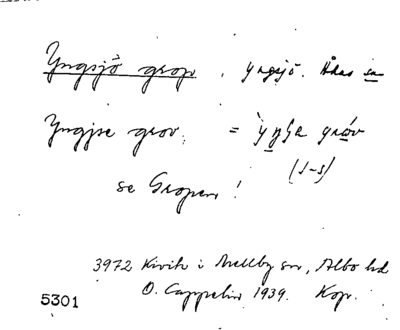 Yngsjö grop, Yngsjö. Åhus sn
Yngsje grov. = 
(J-s)
se Gropen!
3972 Kivik i Mellby sn, Albo hd
O. Cappelin 1939. Kop.
5301